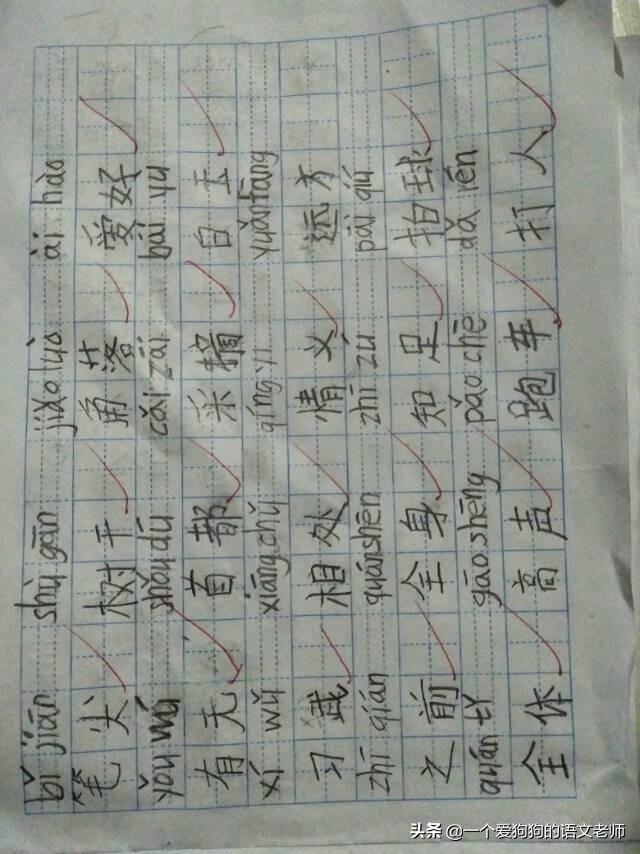 bǐ jiān shù gān jiǎo luò ài hào
笔尖 树干 角落 爱好
yǒu wú shǒu dū cǎi zāi bái yù
有无 首都 采摘 白玉
xí wǔ xiāng chǔ qíng yì yuǎn fāng
习武 相处 情义 远方
zhī qián quán shēn zhī zú pāi qiú
之前 全身 知足 拍球
quán tǐ gāo shēng pǎo chē dǎ rén
全体 高声 跑车 打人
头条 @一个爱狗狗的语文老师